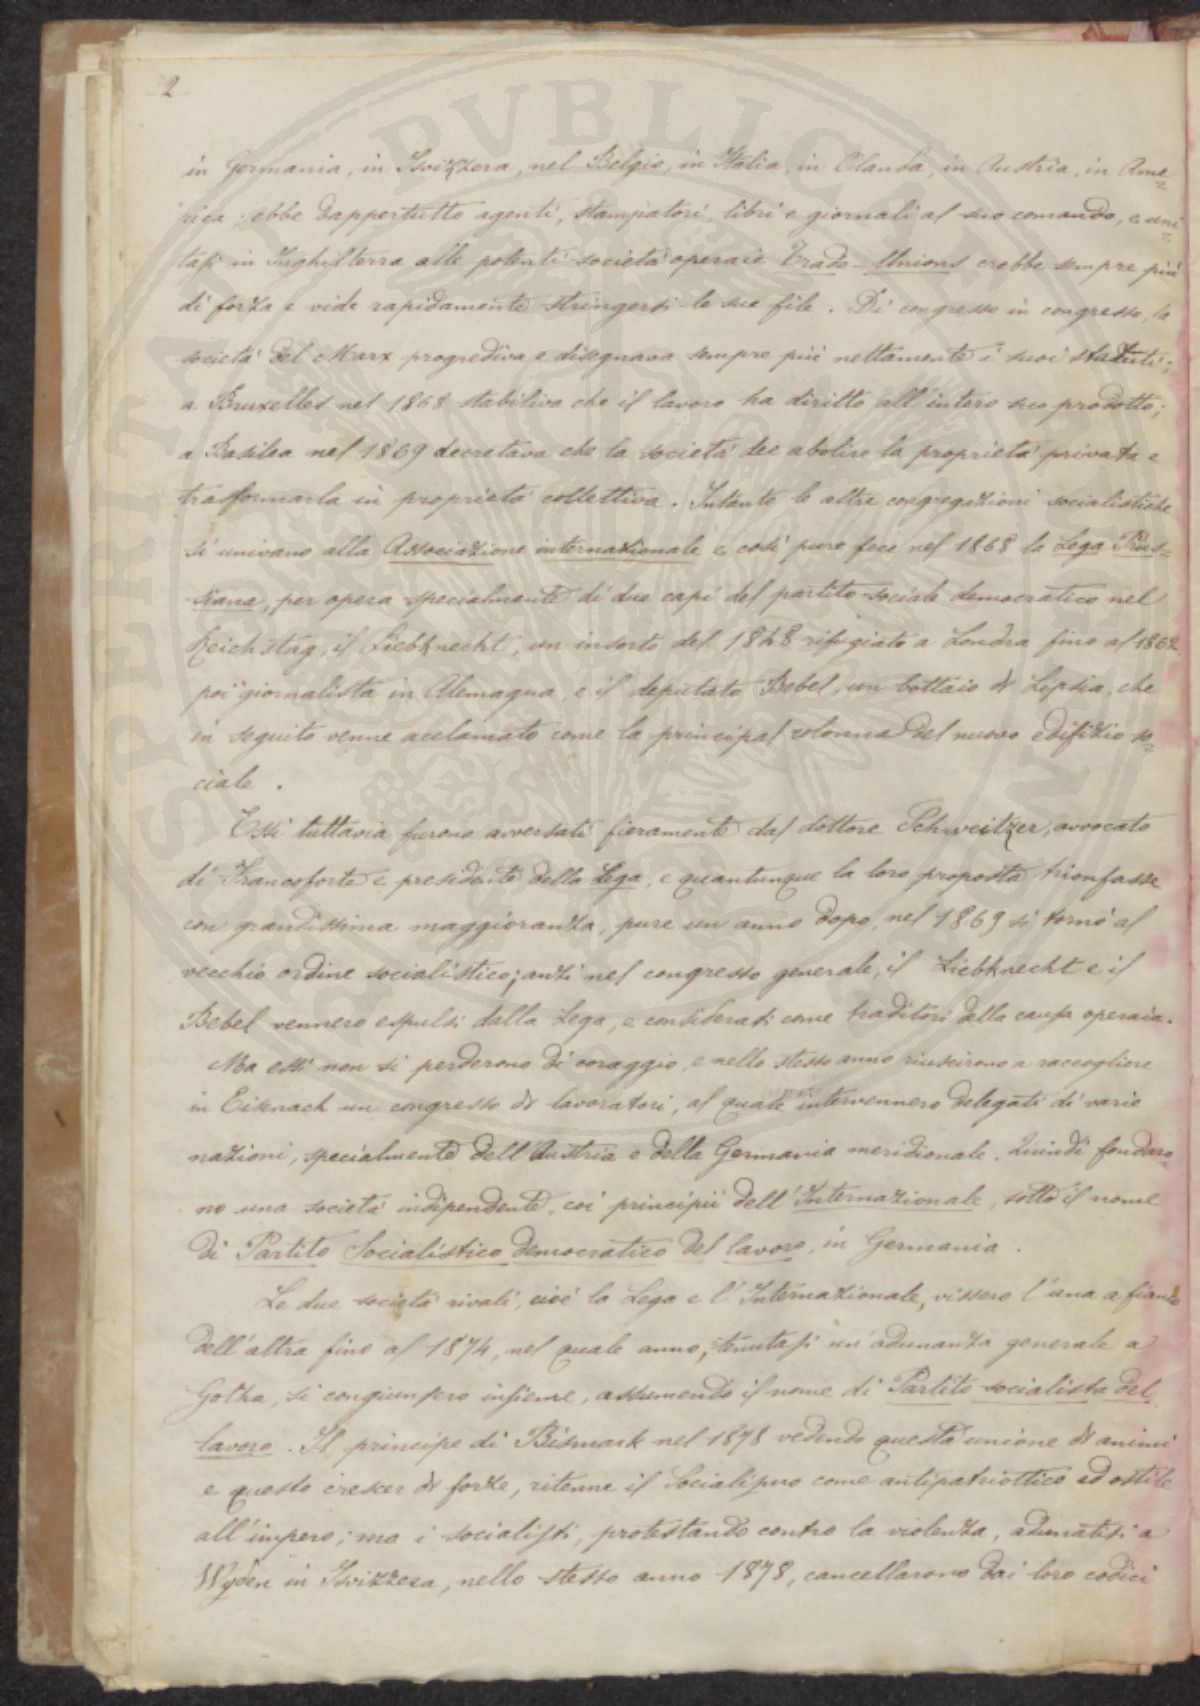 2
in Germania, in Isvizzera, nel Belgio, in Italia, in Olanda, in Austria, in Ame=
rica; ebbe dappertutto agenti, stampatori, libri e giornali al suo comando, e uni=
tasi in Inghilterra alle potenti società operaie Trade-Unions crebbe sempre più
di forza e vide rapidamente stringersi le sue file. Di congresso in congresso, la
società del Marx progrediva e disegnava sempre più nettamente i suoi statuti;
a Bruxelles nel 1868 stabiliva che il lavoro ha diritto all'intero suo prodotto;
a Basilea nel 1869 decretava che la società dee abolire la proprietà privata e
trasformarla in proprietà collettiva. Intanto le altre congregazioni socialistiche
si univano alla Associazione internazionale e così pure fece nel 1868 la Lega Prus=
siana, per opera specialmente di due capi del partito sociale democratico nel
Reichstag, il Liebknecht, un insorto del 1848 rifugiato a Londra fino al 1862
poi giornalista in Alemagna, e il deputato Bebel, un bottaio di Lipsia, che
in seguito venne acclamato come la principal colonna del nuovo edifizio so=
ciale.
Essi tuttavia furono avversati fieramente dal dottore Schweitzer, avvocato
di Francoforte e presidente della Lega, e quantunque la loro proposta trionfasse
con grandissima maggioranza, pure un anno dopo, nel 1869 si tornò al
vecchio ordine socialistico; anzi nel congresso generale, il Liebknecht e il
Bebel vennero espulsi dalla Lega, e considerati come traditori della causa operaia.
Ma essi non si perderono di coraggio, e nello stesso anno riuscirono a raccogliere
in Eisenach un congresso di lavoratori, al quale intervennero delegati di varie
nazioni, specialmente dell'Austria e della Germania meridionale. Quindi fondaro
no una società indipendente, coi principii dell'Internazionale, sotto il nome
di Partito Socialistico democratico del lavoro, in Germania.
Le due società rivali, cioè la Lega e l'Internazionale, vissero l'una a fianco
dell'altra fino al 1874, nel quale anno, tenutasi un'adunanza generale a
Gotha, si congiunsero insieme, assumendo il nome di Partito socialista del
lavoro. Il principe di Bismark nel 1878 vedendo questa unione di animi
e questo crescer di forze, ritenne il Socialismo come antipatriottico ed ostile
all'impero; ma i socialisti, protestando contro la violenza, adunatisi a
Wyden in Isvizzera, nello stesso anno 1878, cancellarono dai loro codici